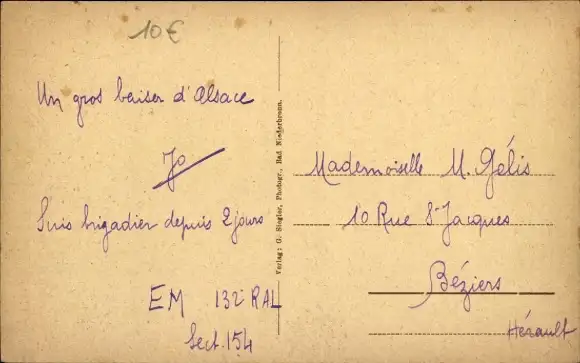 10€
Un gros baiser d'Alsace
Jo
Suis brigadier depuis 2 jours
EM 132e RAL
Sect. 154
Verlag: G. Siegler, Photogr., Bad Niederbronn.
Mademoiselle M. Gélis
10 Rue St Jacques
Béziers
Hérault